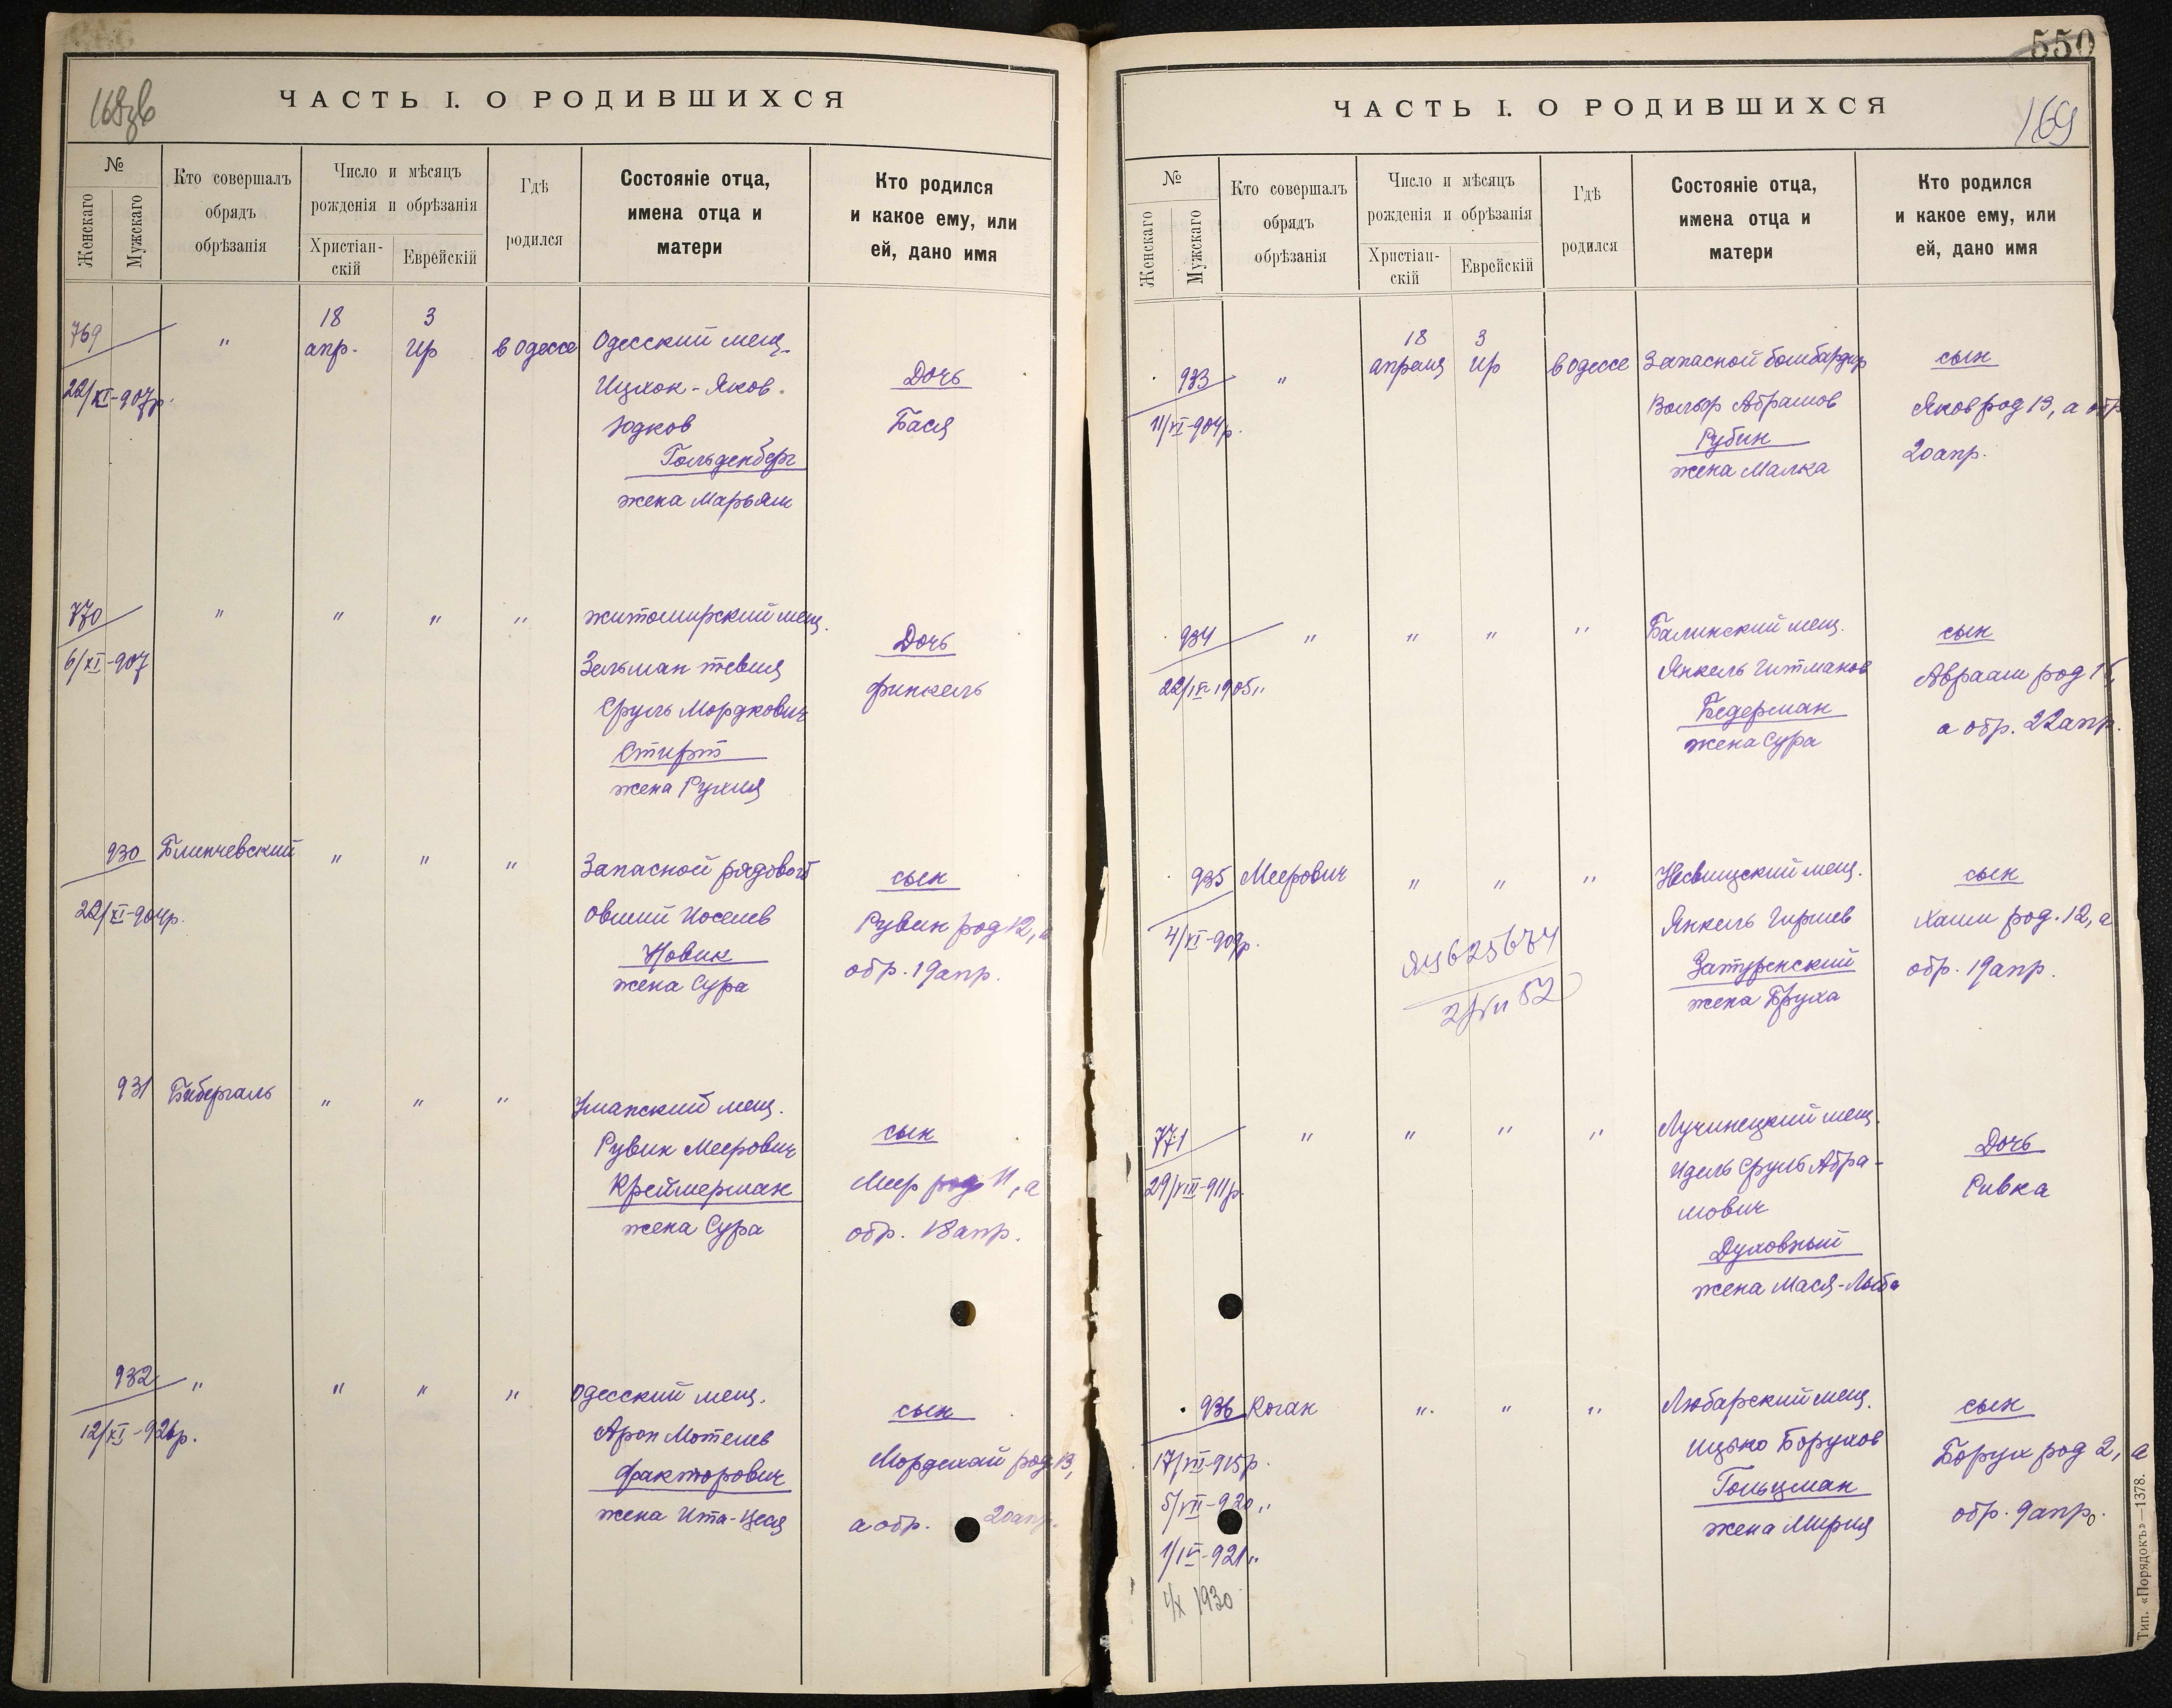 168об
ЧАСТЬ I. О РОДИВШИХСЯ
№
Женскаго
Мужскаго
Кто совершалъ
обрядъ
обрѣзанія
Число и мѣсяцъ
рожденія и обрѣзанія
Христіан-
скій
Еврейскій
Гдѣ
родился
Состояніе отца,
имена отца и
матери
Кто родился
и какое ему, или
ей, дано имя
18 3
769 " апр. Ир в Одессе Одесский мещ.
22/XI-907р. Ицхок-Яков Дочь
Юдков Бася
Гольденберг
жена Марьям
770 " " " " житомирский мещ.
6/XI-907 Зельман Тевия Дочь
Сруль Мордкович Финкель
Стирт
жена Рухля
930 Блинчевский " " " Запасной рядовой сын
22/XI-904р. Овший Иосиев Рувин род 12, а
Новик обр. 19 апр.
жена Сура
931 Бибергаль " " " Уманский мещ.
Рувин Меерович сын
Креймерман Меер род 11, а
жена Сура обр. 18 апр.
932 " " " " Одесский мещ.
12/XI-926р. Арон Мотелев сын
Факторович Мордехай род 13,
жена Ита-Цеся а обр. 20 апр.
550
169
ЧАСТЬ I. О РОДИВШИХСЯ
№
Женскаго
Мужскаго
Кто совершалъ
обрядъ
обрѣзанія
Число и мѣсяцъ
рожденія и обрѣзанія
Христіан-
скій
Еврейскій
Гдѣ
родился
Состояніе отца,
имена отца и
матери
Кто родился
и какое ему, или
ей, дано имя
18 3
933 " апреля Ир в Одессе Запасной бомбардир сын
11/VI-904р. Вольф Абрамов Яков род 13, а обр
Рубин 20 апр.
жена Малка
934 " " " " Балинский мещ. сын
22/IV 1905" Янкель Гитманов Авраам род 15,
Бедерман а обр. 22 апр.
жена Сура
935 Меерович " " " Несвицский мещ. сын
4/XI-909р. Янкель Гиршев Хаим род. 12, а
Затуренский обр. 19 апр.
жена Бруха
ЯЦ 625674
52
771 " " " " Лучинецкий мещ.
29/VIII-911р. Идель Сруль Абра- Дочь
мович Ривка
Духовный
жена Мася-Люба
936 Коган " " " Любарский мещ. сын
17/VII-915р. Ицько Борухов Борух род 2, а
5/VII-920" Гольцман обр. 9 апр.
1/IV-921" жена Мирия
1/X 1930
Тип. «Порядокъ»—1378.